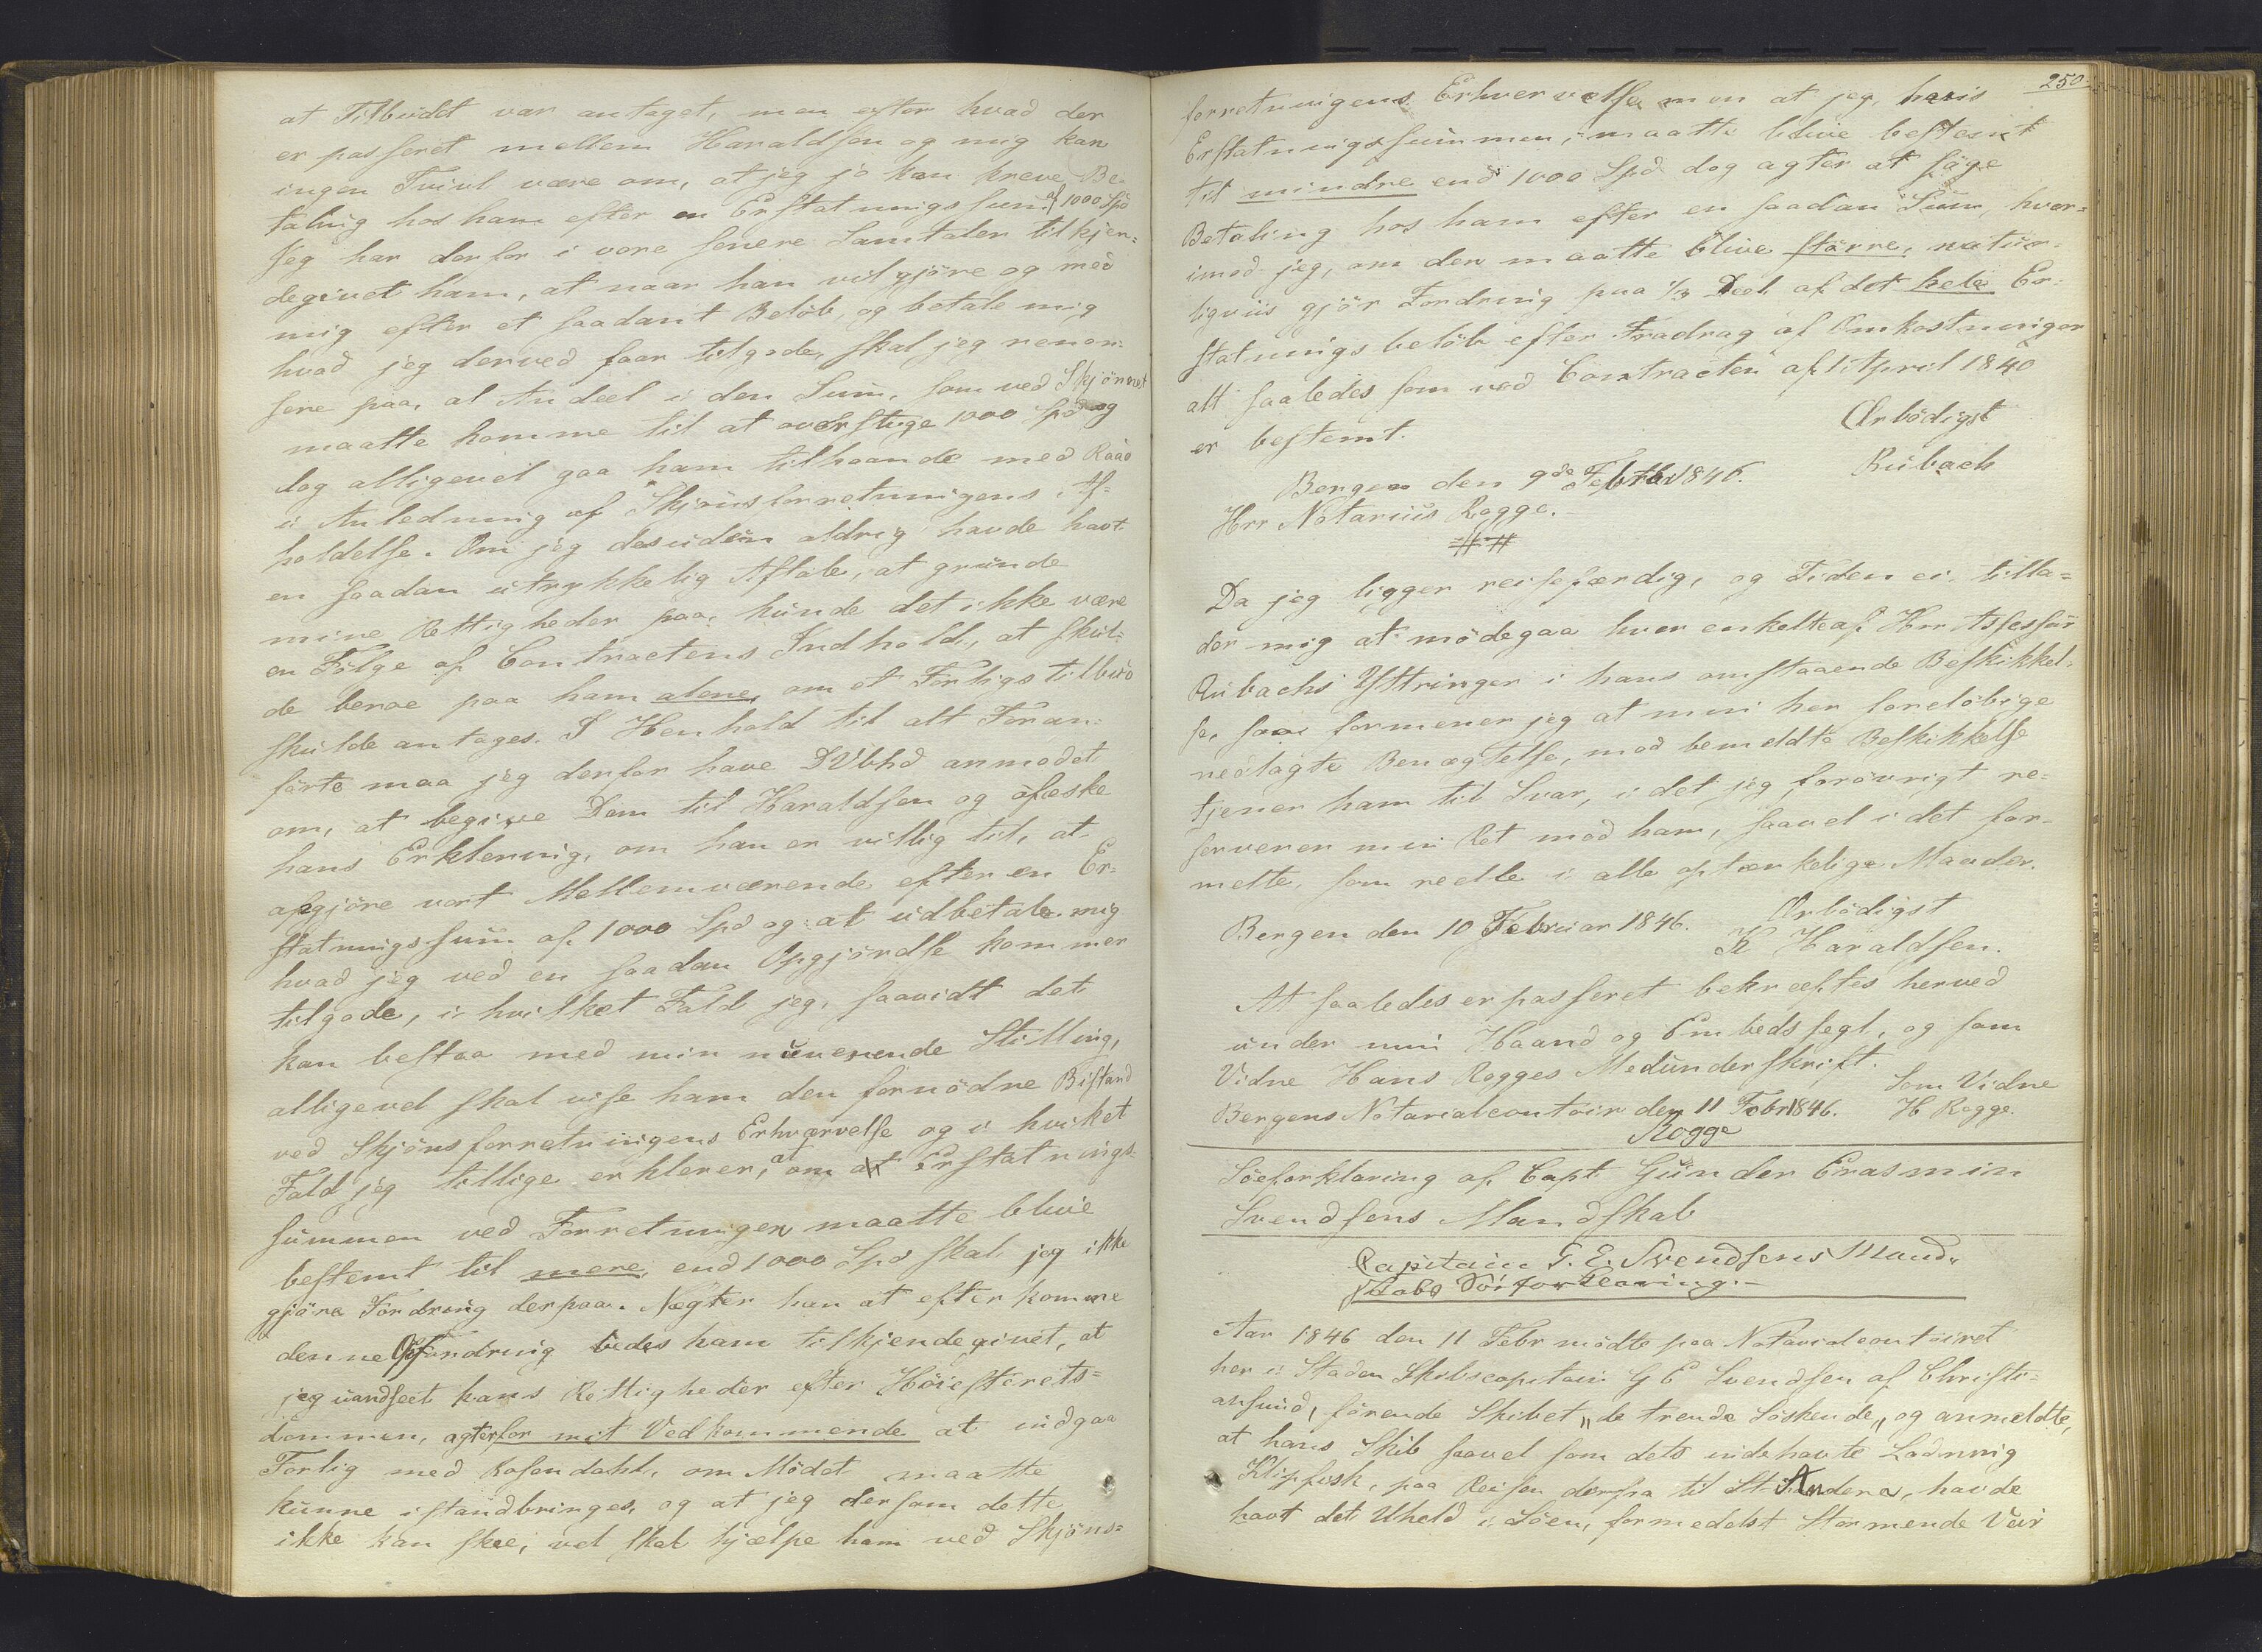 at Tilbudet var antaget, men efter hvad der
er passeret mellem Haraldsen og mig kan
ingen Tvivl være om, at jeg jo kan kreve Be-
taling hos ham efter en Erstatningssum af 1000 Spd
Jeg har derfor i vore senere Samtaler tilkjen-
degivet ham, at naar han vil gjöre op med
mig efter et saadant Belöb, og betale mig
hvad jeg derved faar tilgode, skal jeg renon-
sere paa, al Andeel i den Sum, som ved Skjönnet
maatte komme til at overstige 1000 Spd og
dog alligevel gaa ham tilhaande med Raad
i Anledning af Skjönsforretningens Af-
holdelse. Om jeg desuden aldrig havde havt
en saadan utrykkelig Aftale, at grunde
mine Rettigheder paa, kunde det ikke være
en Fölge af Contractens Indhold, at skul-
de beroe paa ham alene, om et Forligs tilbud
skulde antages. I Henhold til alt Foran-
förte maa jeg derfor have DVbhd anmodet
om, at begive Dem til Haraldsen og afæske
hans Erklering, om han er villig til, at
afgjöre vort Mellemværende efter en Er-
statningssum af 1000 Spd og at udbetale mig
hvad jeg ved en saadan Opgjörelse kommer
tilgode, i hvilket Fald jeg, saavidt det
kan bestaa med min nuverende Stilling,
alligevel skal vise ham den fornödne Bistand
ved Skjönsforretningens Erhvervelse og i hvilket
Fald jeg tillige erklerer, at om Erstatnings-
summen ved Forretningen maatte blive
bestemt til mere, end 1000 Spd skal jeg ikke
gjöre Fordring derpaa. Nægter han at efterkomme
denne Opfordring bedes ham tilkjendegivet, at
jeg uandseet hans Rettigheder efter Höiesterets-
dommen, agter for mit Vedkommende at indgaa
Forlig med Rosendahl, om Mödet maatte
kunne istandbringes, og at jeg dersom dette
ikke kan skee, vel skal hjælpe ham ved Skjöns-
250.
forretningens Erhvervelse men at jeg, hvis
Erstatningssummen, maatte blive bestemt
til mindre end 1000 Spd dog agter at söge
Betaling hos ham efter en saadan Sum, hvor-
imod jeg, om den maatte blive större, natur-
ligviis gjör Fordring paa 1/3 Deel af det hele Er-
statningsbelöb efter Fradrag af Omkostninger
alt saaledes som ved Contracten af 1 April 1840
er bestemt.
Ærbödigst
Bergen den 9de Febr 1846.
Rubach
Hrr Notarius Rogge.
Da jeg ligger reisefærdig, og Tiden ei tilla-
der mig at mödegaa hver enkelte af Hrr Assessor
Rubachs Yttringer i hans omstaaende Beskikkel-
se, saa formener jeg at min her forelöbige
nedlagte Benægtelse, mod bemeldte Beskikkelse
tjener ham til Svar, i det jeg forövrigt re-
serverer min Ret mod ham, saavel i det for-
melle, som reelle i alle optænkelige Maader.
Bergen den 10 Februar 1846.
Ærbödigst
K Haraldsen.
At saaledes er passeret bekræftes herved
under min Haand og Embedssegl, og som
Vidne Hans Rogges Medunderskrift.
Bergens Notarialcontoir den 11 Febr 1846.
Som Vidne
H Rogge.
Rogge
Söeforklaring af Capt Gunder Erasmin
Svendsens Mandskab
Capitain G. E. Svendsens Mand-
skabs Söiforklaring.-
Aar 1846 den 11 Febr mödte paa Notarialcontoiret
her i Staden Skibscapitain G E Svendsen af Christi-
ansund, förende Skibet "de trende Söskende" og anmeldte,
at hans Skib saavel som dets indehavte Ladning
Klipfisk, paa Reisen derfra til St Andera, havde
havt det Uheld i Söen, formedelst stormende Veir